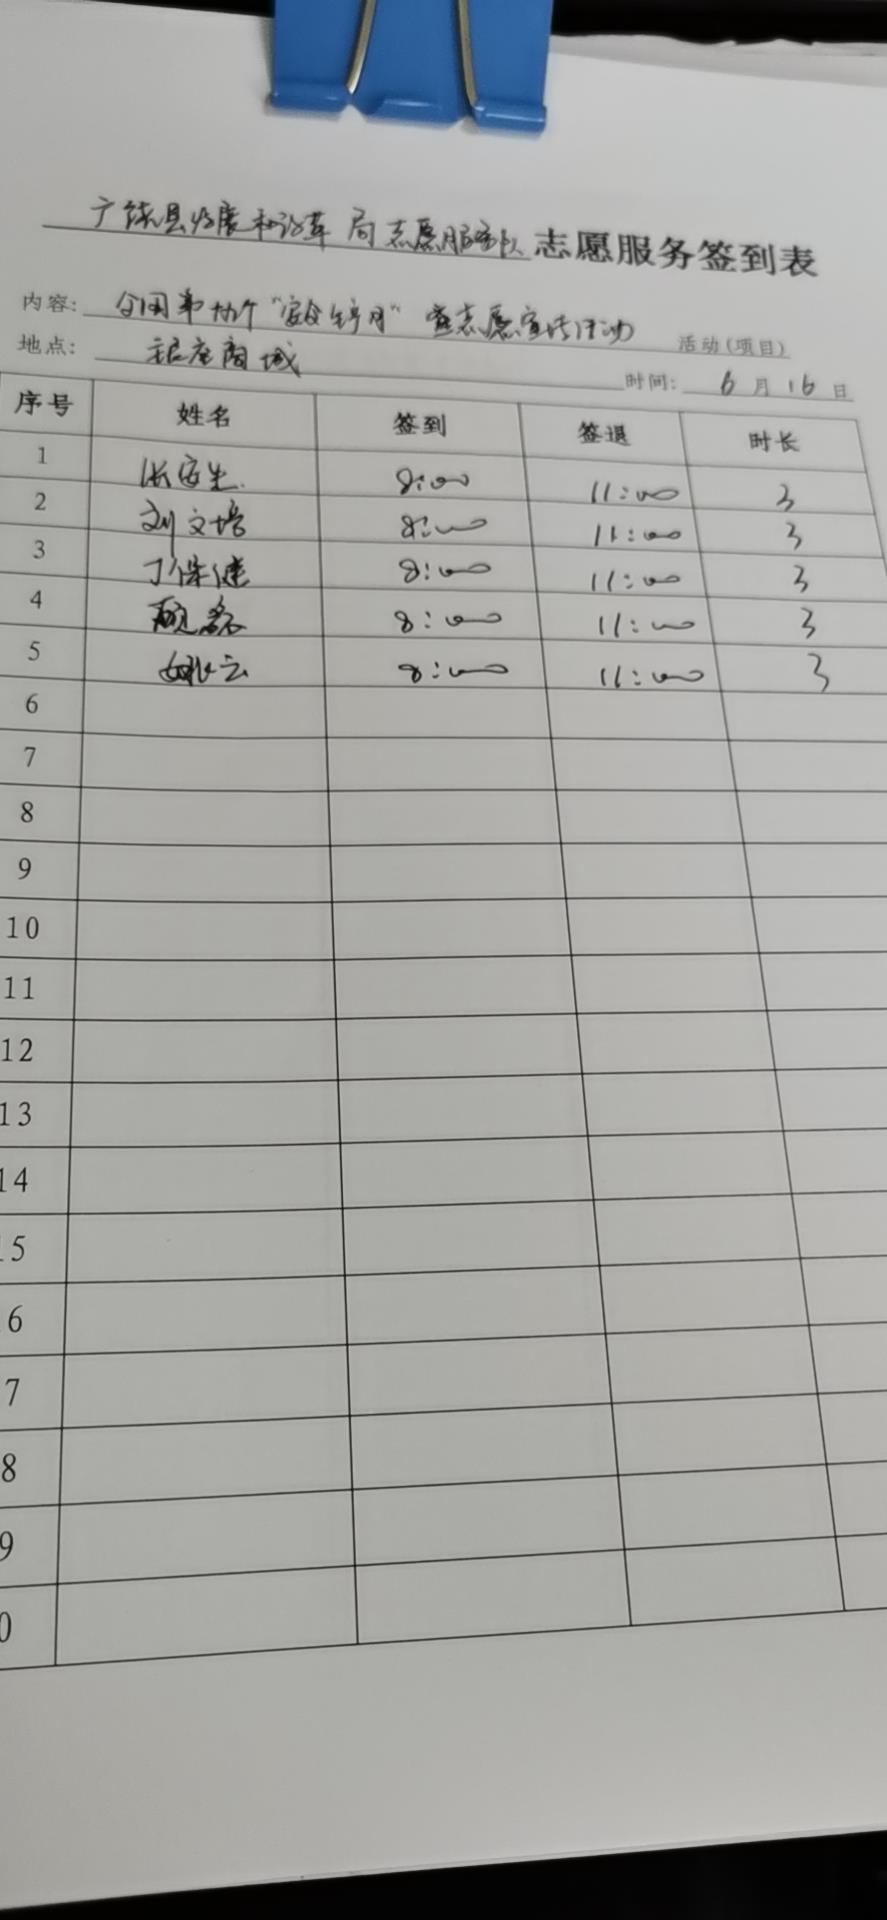 广饶县发展和改革局志愿服务队志愿服务签到表
内容: 全国第 个"安全生产月" 志愿宣传活动 活动(项目)
地点: 银座商城 时间: 6月16日
序号 姓名 签到 签退 时长
1 8:00 11:00 3
2 刘文培 8:00 11:00 3
3 丁保健 8:00 11:00 3
4 顾磊 8:00 11:00 3
5 姚云 8:00 11:00 3
6
7
8
9
10
11
12
13
14
5
6
7
8
9
0